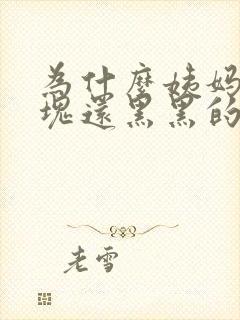 為什麼姨妈
塊還黑黑的
老雪